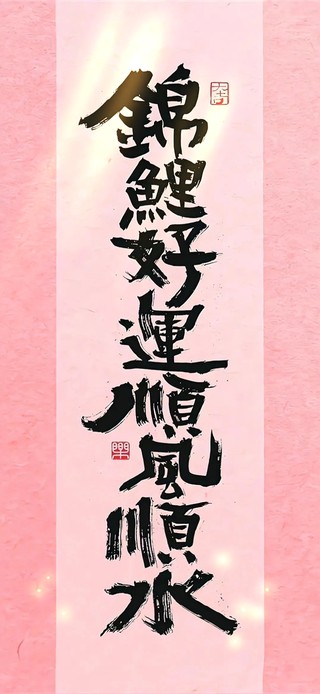 錦鯉好運順風順水